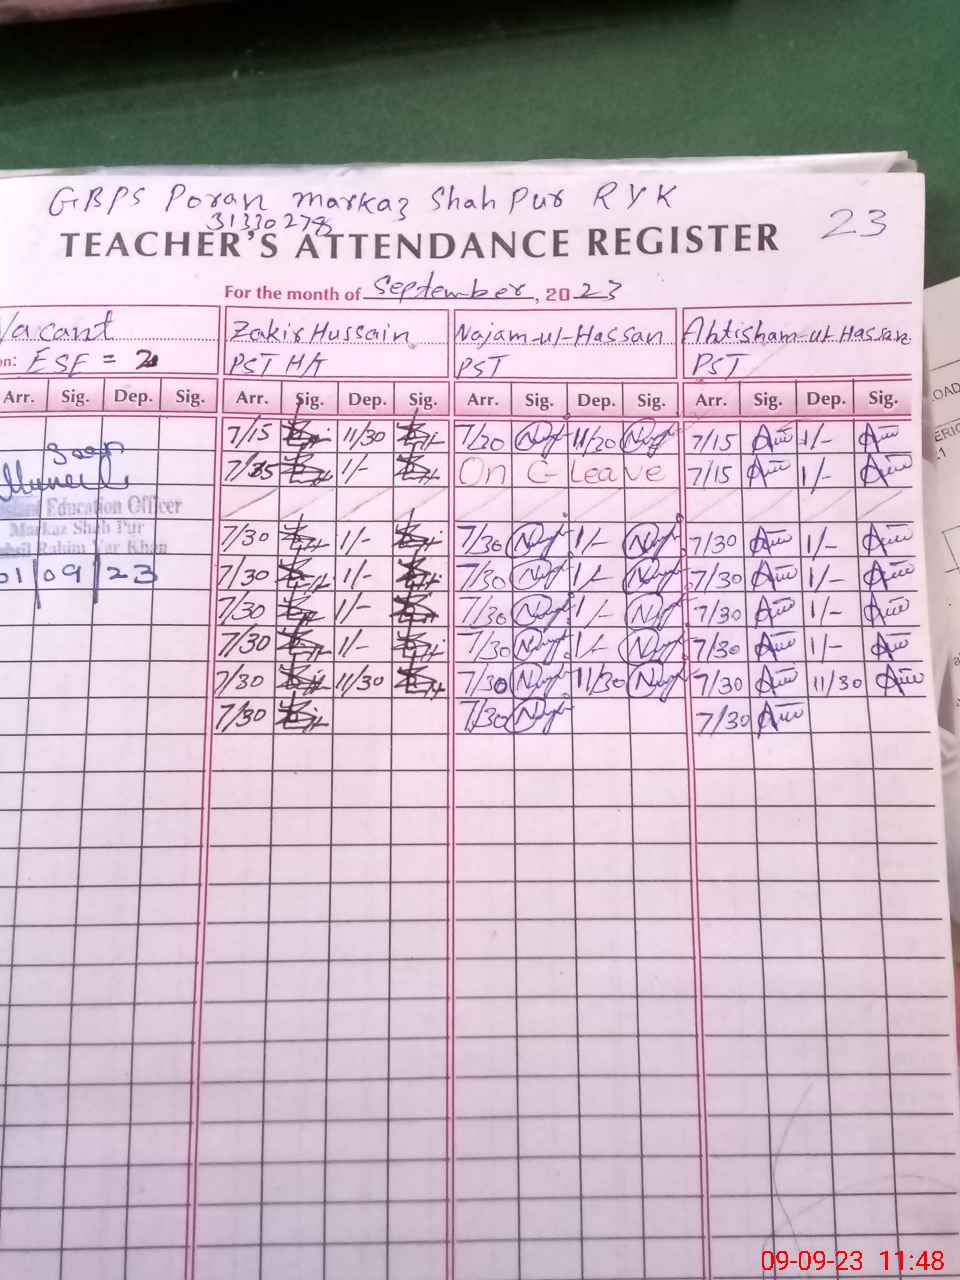 GBPS Poran markaz Shah Pur RYK
31330278
23
TEACHER'S ATTENDANCE REGISTER
For the month of September, 2023
Vacant Zakir Hussain Najam-ul-Hassan Ahtisham-ul-Hassan
on: ESE = 2 PST HA PST PST
Arr. Sig. Dep. Sig. Arr. Sig. Dep. Sig. Arr. Sig. Dep. Sig. Arr. Sig. Dep. Sig.
7/15 11/30 7/20 11/20 7/15 1/-
Seen
1/- On C-Leave 7/15 1/-
Education Officer
Markaz Shah Pur
7/30 1/- 7/30 1/- 7/30 1/-
Rahim Yar Khan
01 09 23 7/30 1/- 7/30 1/- 7/30 1/-
7/30 1/- 7/30 1/- 7/30 1/-
7/30 1/- 7/30 1/- 7/30 1/-
7/30 11/30 7/30 11/30 7/30 11/30
7/30 7/30 7/30
OAD
ERIC
09-09-23 11:48